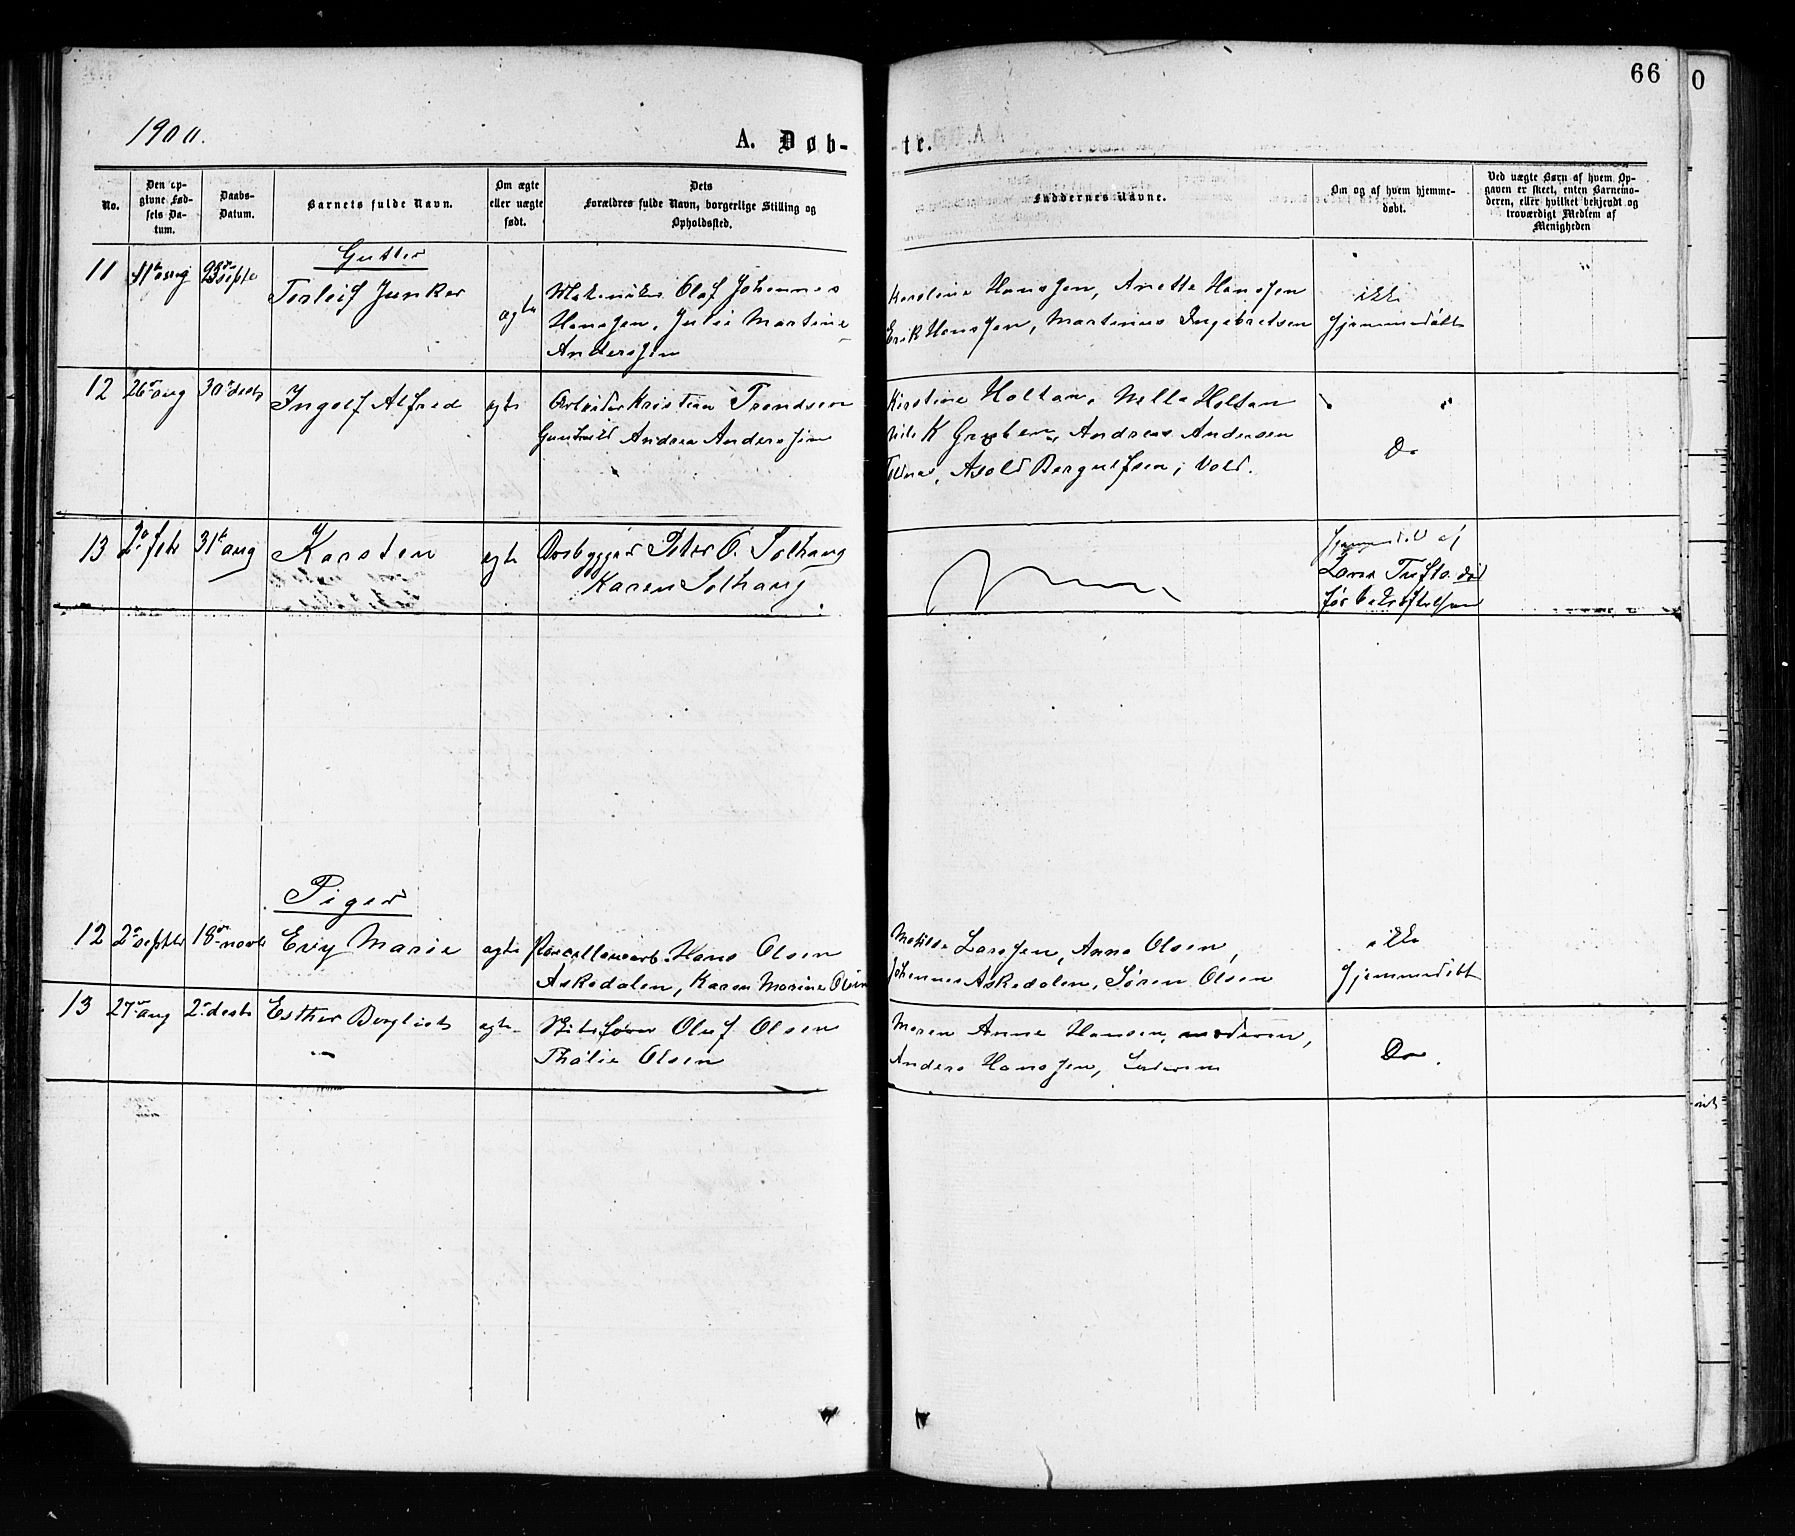 66
0
1900.
A. Døb-
-te.
No.
Den op-
givne Fød-
sels Da-
tum.
Daabs-
Datum.
Barnets fulde Navn.
Om ægte
eller uægte
født.
Dets
Forældres fulde Navn, borgerlige Stilling og
Opholdssted.
Faddernes Navne.
Om og af hvem hjemme-
døbt.
Ved uægte Børn af hvem Op-
gaven er skeet, enten Barnemo-
deren, eller hvilket bekjendt og
troværdigt Medlem af
Menigheden
Gutter
11 11te aug septe Torleif Junker ægte Olaf Johannes
Hanssen, Julie Martine
Anderssen
Karoline Hanssen, Anette Hanssen
Erik Hanssen, Martinus Ingebretsen
ikke
hjemmedøbt
12 26 aug 30 decb Ingolf Alfred ægte Arbeider Kristian Trondsen
Gunhild Andrea Anderssen
Kirstine Holtan, Nella Holtan
Nils K Andreas Andersen
Asold Bergulfsen, Vold.
Do
13 2 feb 31te aug Karsten ægte Peter O. Solhaug
Karen Solhaug
hjemmedøbt af
Piger
12 2 septbr 18 novb Evy Marie ægte Porcellænsarb. Hans Olsen
Askedalen, Karen Marine Olsen
Matilde Larssen, Anna Olsen,
Johannes Askedalen, Søren Olsen
ikke
hjemmedøbt
13 27 aug 2 decb Esther Bergliot ægte Oluf Olsen
Thalie Olsen
Maren Anne Hansen, moderen,
Anders Hanssen, faderen
Do.